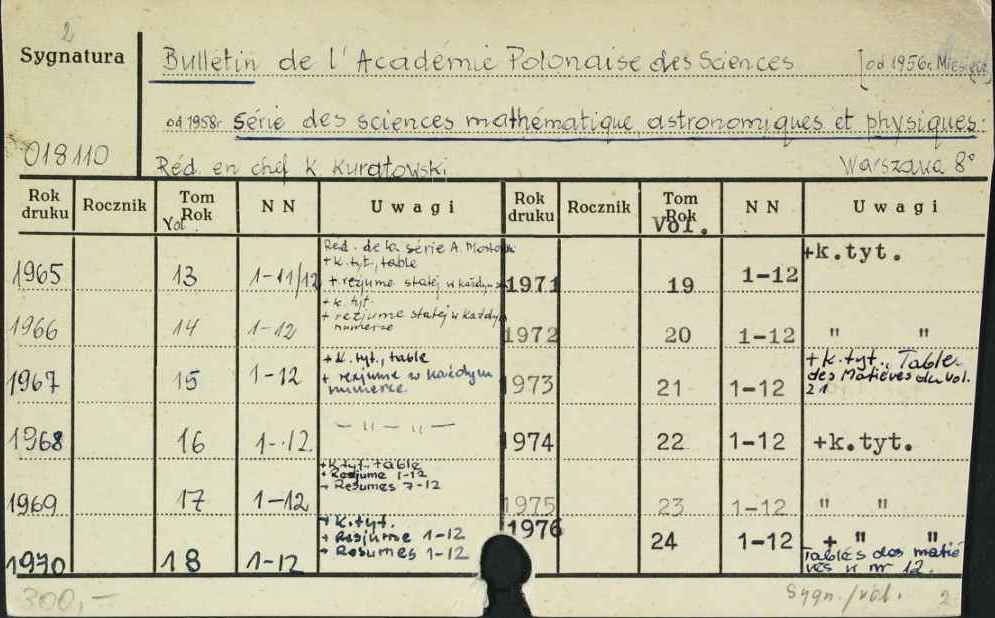 2
Sygnatura
Bulletin de l'Académie Polonaise des Sciences [od 1956r.
od 1958r Série des sciences mathématique astronomiques et physiques.
018110
Réd. en chef K. Kuratowski Warszawa 8°
Rok druku Rocznik Tom Rok Vol N N Uwagi Rok druku Rocznik Tom Rok Vol. N N Uwagi
1965 13 1-11/12 Red. de la série A.
+ k. tyt., table
+ rezjume statej w każdym
1971 19 1-12 +k.tyt.
1966 14 1-12 + k. tyt
+ rezjume statej w każdym
numerze
1972 20 1-12 " "
1967 15 1-12 + k. tyt., table
+ rezjume w każdym
numerze
1973 21 1-12 + k.tyt., Tables
des Matières du vol.
21
1968 16 1-12 — " — " —
1974 22 1-12 +k.tyt.
1969 17 1-12 + k.tyt. table
+ Rezjume 1-12
+ Resumes 7-12
1975 23 1-12 " "
1970 18 1-12 + k.tyt.
+ Rezjume 1-12
+ Resumes 1-12
1976 24 1-12 + " "
Tables des matiè
res w nr 12.
300,-
Sygn./vol. 2